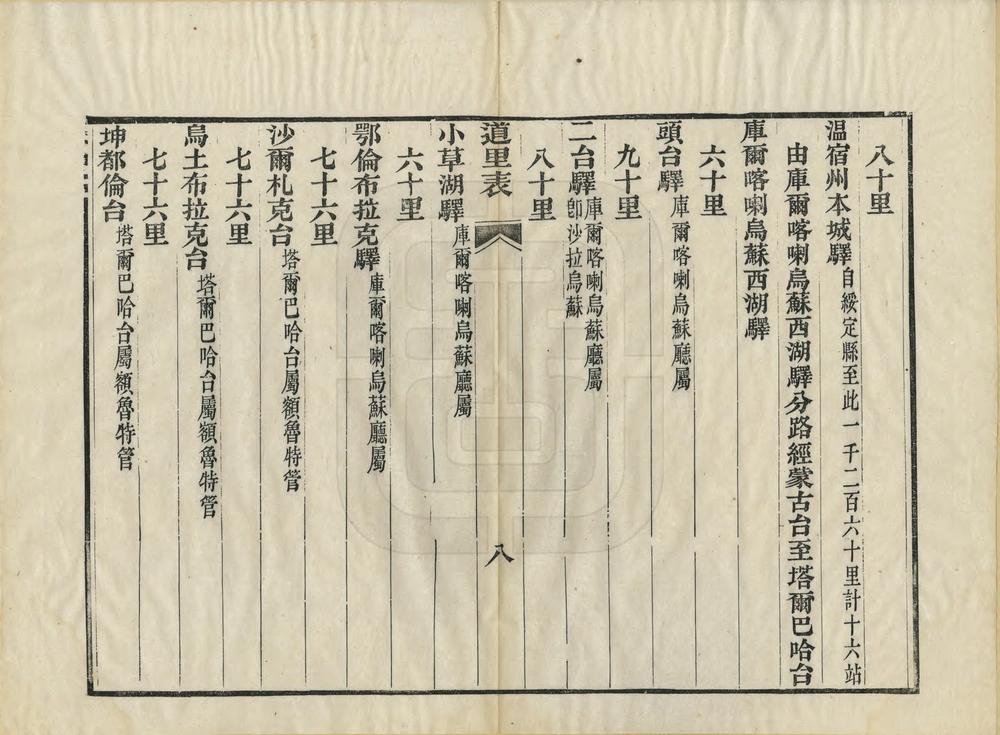 八十里
温宿州本城驛自綏定縣至此一千二百六十里計十六站
由庫爾喀喇烏蘇西湖驛分路經蒙古台至塔爾巴哈台
庫爾喀喇烏蘇西湖驛
六十里
頭台驛庫爾喀喇烏蘇廳屬
九十里
二台驛庫爾喀喇烏蘇廳屬
卽沙拉烏蘇
八十里
道里表
八
小草湖驛庫爾喀喇烏蘇廳屬
六十里
鄂倫布拉克驛庫爾喀喇烏蘇廳屬
七十六里
沙爾札克台塔爾巴哈台屬額魯特管
七十六里
烏土布拉克台塔爾巴哈台屬額魯特管
七十六里
坤都倫台塔爾巴哈台屬額魯特管